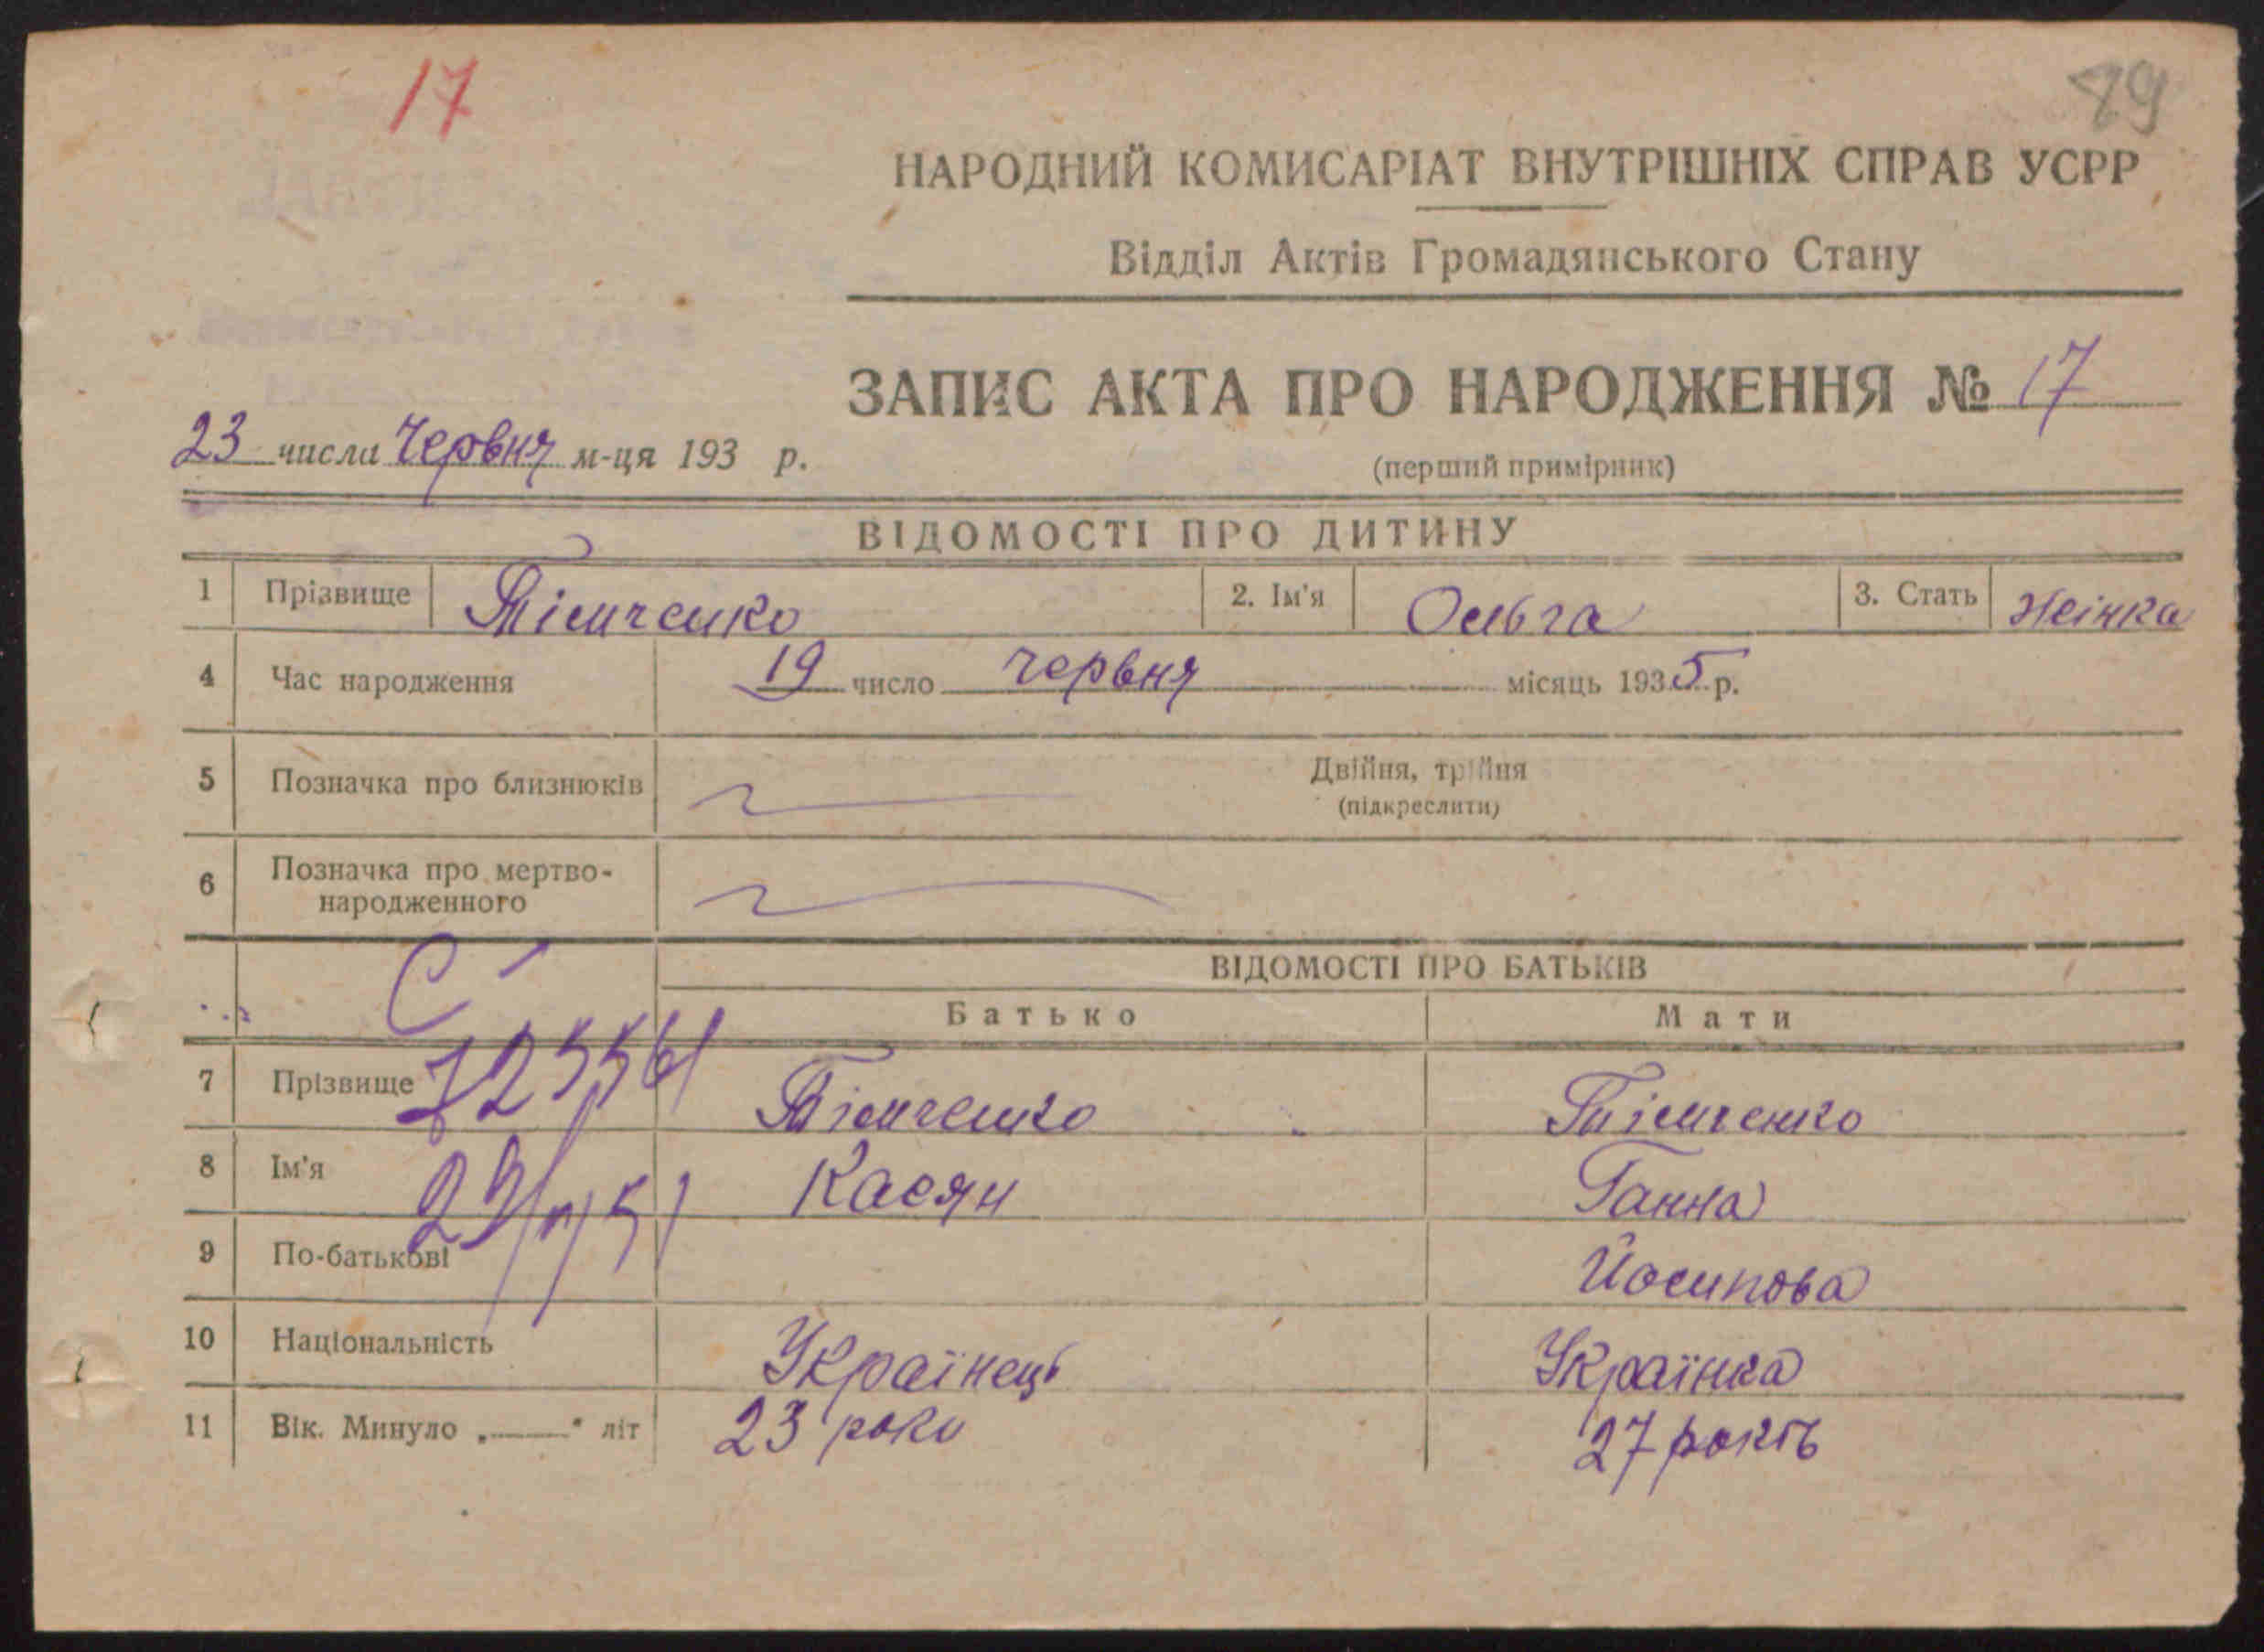 17
НАРОДНИЙ КОМИСАРІАТ ВНУТРІШНІХ СПРАВ УСРР
Відділ Актів Громадянського Стану
ЗАПИС АКТА ПРО НАРОДЖЕННЯ № 17
23 числа Червня м-ця 193 р.
(перший примірник)
ВІДОМОСТІ ПРО ДИТИНУ
1 Прізвище Тімченко 2. Ім'я Ольга 3. Стать Жінка
4 Час народження 19 число червня місяць 1935 р.
5 Позначка про близнюків Двійня, трійня
(підкреслити)
6 Позначка про мертво-
народженного
ВІДОМОСТІ ПРО БАТЬКІВ
Батько Мати
7 Прізвище Тімченко Тімченко
8 Ім'я Касян Ганна
9 По-батькові Йосипова
10 Національність Українець Українка
11 Вік. Минуло „——" літ 23 роки 27 років